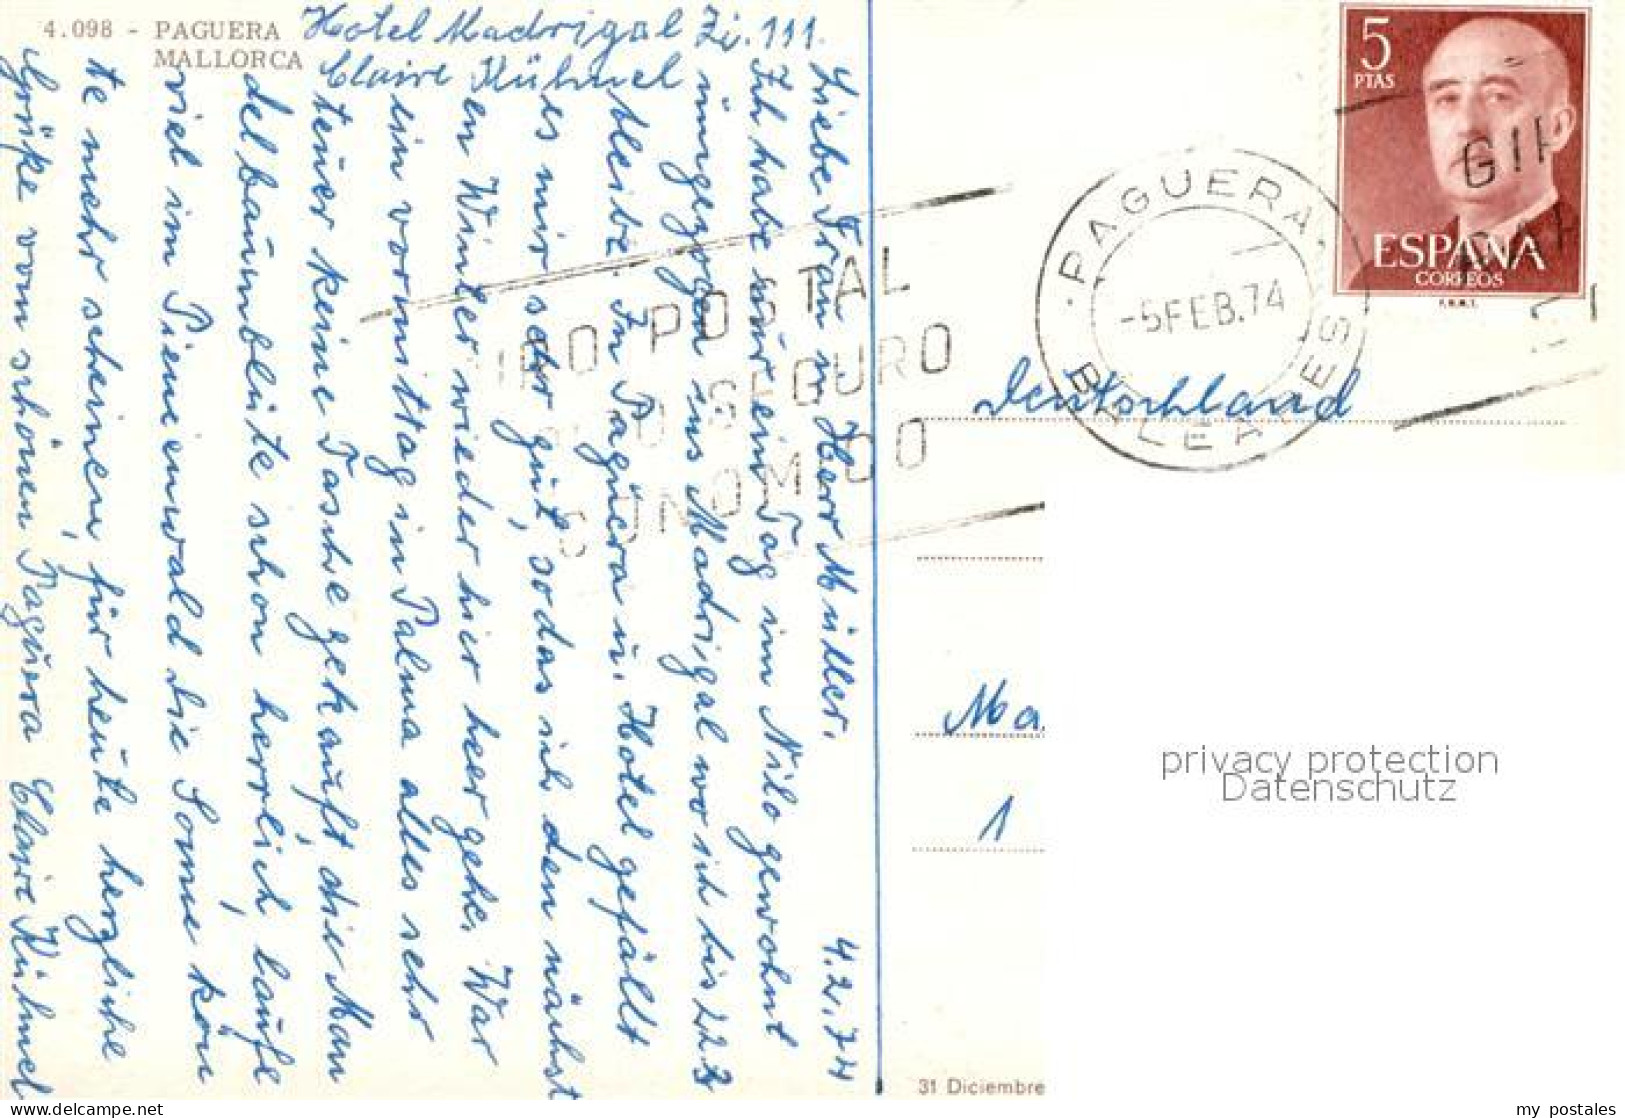 4.098 - PAGUERA
MALLORCA
Hotel Madrigal Zi. 111.
Claire Kühnel
Liebe Frau u. Herr Müller. 4.2.74
Ich habe nür ein Tag im Nilo gewohnt
ümgezogen ins Madrigal wo ich bis 22 3
bleibe. In Pagüera u. Hotel gefällt
es mir sehr güt, sodas ich den nächst
en Winter wieder hier her gehe. War
ein vormittag in Palma alles sehr
teüer keine Tasche gekaüft, die Man
delbaümblüte schon herrlich, laüfe
viel im Pienienwald die Sonne kön
te mehr scheinen, für heüte herzliche
Grüße vom schönen Pagüera Claire Kühnel
5
PTAS
ESPAÑA
CORREOS
F.N.M.T.
PAGUERA
BALEARES
-5 FEB. 74
GIRO POSTAL
SEGURO
GI
Deutschland
Ma
1
privacy protection
Datenschutz
31 Diciembre
my postales